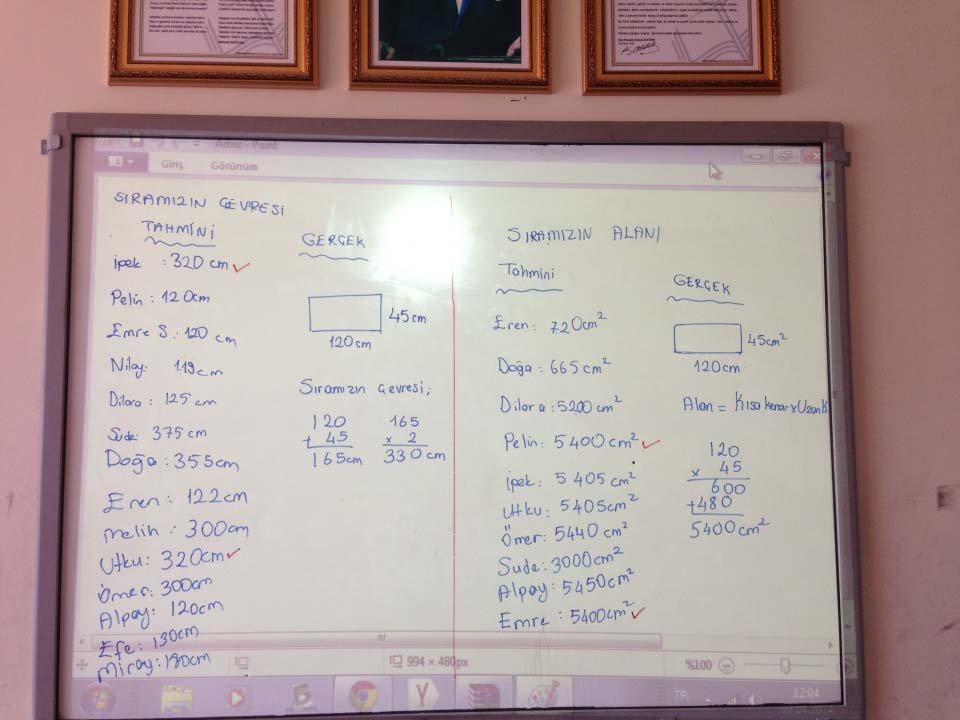 Adsız - Paint
Giriş Görünüm
SIRAMIZIN ÇEVRESİ
TAHMİNİ
ipek : 320 cm ✓
Pelin : 120cm
Emre S. : 120 cm
Nilay: 119cm
Dilara : 125 cm
Sude: 375cm
Doğa : 355cm
Eren : 122cm
Melih : 300cm
Utku: 320cm ✓
Ömer: 300cm
Alpay: 120cm
Efe: 130cm
Miray: 190cm
GERÇEK
45cm
120cm
Sıramızın çevresi;
120
+ 45
165cm
165
x 2
330 cm
SIRAMIZIN ALANI
Tahmini
Eren: 720cm²
Doğa : 665 cm²
Dilara : 5200 cm²
Pelin: 5400 cm² ✓
ipek: 5405 cm²
Utku: 5405cm²
Ömer: 5440 cm²
Sude: 3000cm²
Alpay: 5450cm²
Emre : 5400cm² ✓
GERÇEK
45cm²
120cm
Alan = Kısa kenar x Uzun K
120
x 45
600
+480
5400cm²
994 × 480px
%100
TR
12:04